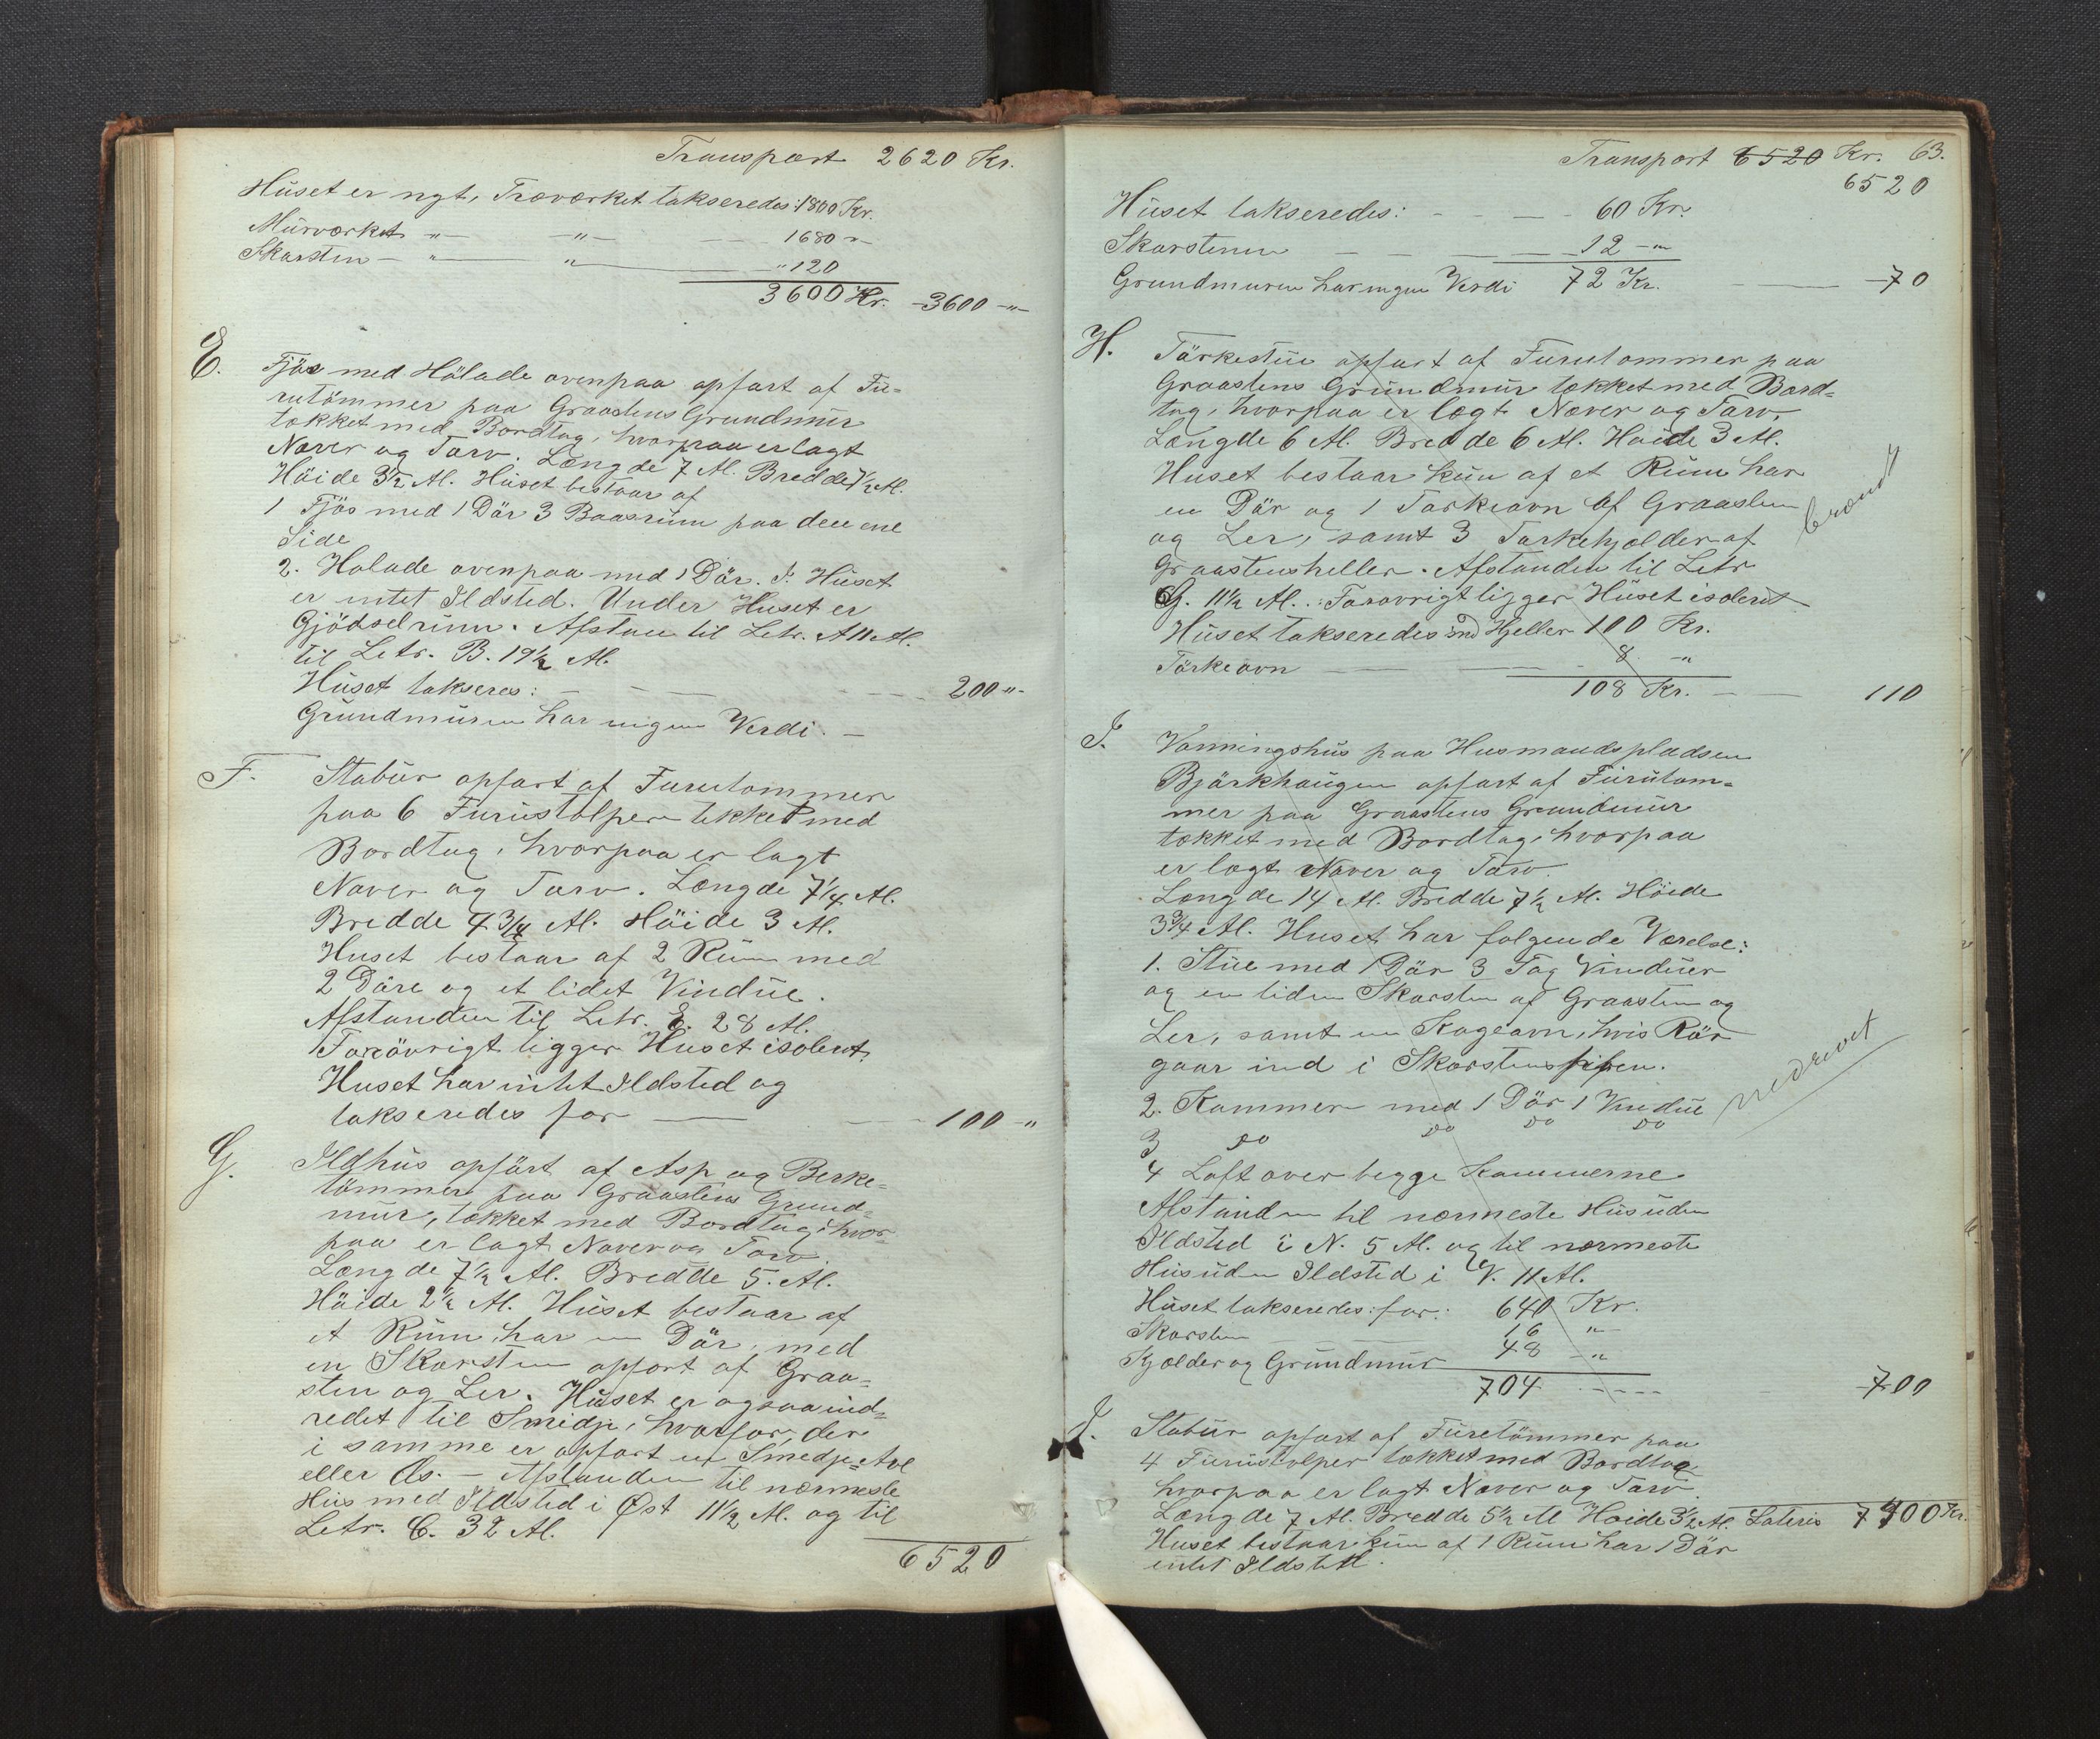 Transport 2620 Kr.
Huset er nyt, Træværket takseredes: 1800 Kr.
Murværket -"- -"- 1680 "
Skorsten - " - " 120
3600 Kr. - 3600 -"-
E. Fjös med Hölade ovenpaa opfört af Fu=
rutömmer paa Graastens Grundmur
tækket med Bordtag, hvorpaa er lagt
Næver og Tørv. Længde 7 Al. Bredde 7½ Al.
Höide 3½ Al. Huset bestaar af
1 Fjös med 1 Dör 3 Baasrum paa den ene
Side
2. Hölade ovenpaa med 1 Dör. I Huset
er intet Ildsted. Under Huset er
Gjödselrum. Afstan til Letr. A 11 Al.
til Letr. B. 19½ Al.
Huset takseres: - - - 200 "-
Grundmuren har ingen Verdi. -
F. Stabur opfört af Furutømmer
paa 6 Furustolper tekket med
Bordtag, hvorpaa er lagt
Næver og Tørv. Længde 7¼ Al.
Bredde 4 3/4 Al. Höide 3 Al.
Huset bestaar af 2 Rum med
2 Döre og et lidet Vindue.
Afstanden til Letr. E. 28 Al.
Forövrigt ligger Huset isolert.
Huset har intet Ildsted og
takseredes for - 100 -"
G. Ildhus opfört af Asp og Berke=
tömmer paa Graastens Grund=
mur, tækket med Bordtag, hvor
paa er lagt Næver og Tørv
Længde 7½ Al. Bredde 5. Al.
Höide 2½ Al. Huset bestaar af
et Rum, har en Dör, med
en Skorsten opfört af Graa=
sten og Ler. Huset er ogsaa ind=
redet til Smidje, hvorfor der
i samme er opfört en Smedje=Avl
eller Es. - Afstanden til nærmeste
Hus med Ildsted i Øst 11½ Al. og til
Letr. C. 32 Al.
6520
Transport 6520 Kr. 63.
6520
Huset takseredes: - - - 60 Kr.
Skorstenen - - - 12 -"
Grundmuren har ingen Verdi 72 Kr. - 70
H. Törkestue opført af Furutømmer paa
Graastens Grundmur tækket med Bord=
tag, hvorpaa er lagt Næver og Tørv
Længde 6 Al. Bredde 6 Al. Høide 3 Al.
Huset bestaar kun af et Rum har
en Dör og 1 Törkeovn af Graasten
og Ler, samt 3 Törkehjelder af
Graastensheller. Afstanden til Letr
G. 11½ Al. Forøvrigt ligger Huset isoleret
Huset takseredes md Hjeller 100 Kr.
Törkeovn - - 8 -"
108 Kr. - - 110
brændt
I. Vaaningshus paa Husmandspladsen
Bjørkhaugen opført af Furutøm=
mer paa Graastens Grundmur
tækket med Bordtag, hvorpaa
er lagt Næver og Tørv.
Længde 14 Al. Bredde 7½ Al. Höide
3 3/4 Al. Huset har følgende Værelse:
1. Stue med 1 Dör 3 Fag Vinduer
og en liden Skorsten af Graasten og
Ler, samt en Kogeovn, hvis Rör
gaar ind i Skorstenspipen.
2. Kammer med 1 Dör 1 Vindue
3 do do do do
4 Loft over begge Kammerne
Afstanden til nærmeste Hus uden
Ildsted i N. 5 Al. og til nærmeste
Hus uden Ildsted i V. 11 Al.
Huset takseredes for: 640 Kr.
Skorsten 16 "
Kjælder og Grundmur 48 -"
704 - - - 700
nedrevet
J. Stabur opført af Furetömmer paa
4 Furustolper tækket med Bordtag
hvorpaa er lagt Næver og Tørv.
Længde 7 Al. Bredde 5½ Al Høide 3½ Al. Lateris 7400 Kr.
Huset bestaar kun af 1 Rum har 1 Dör
intet Ildsted.